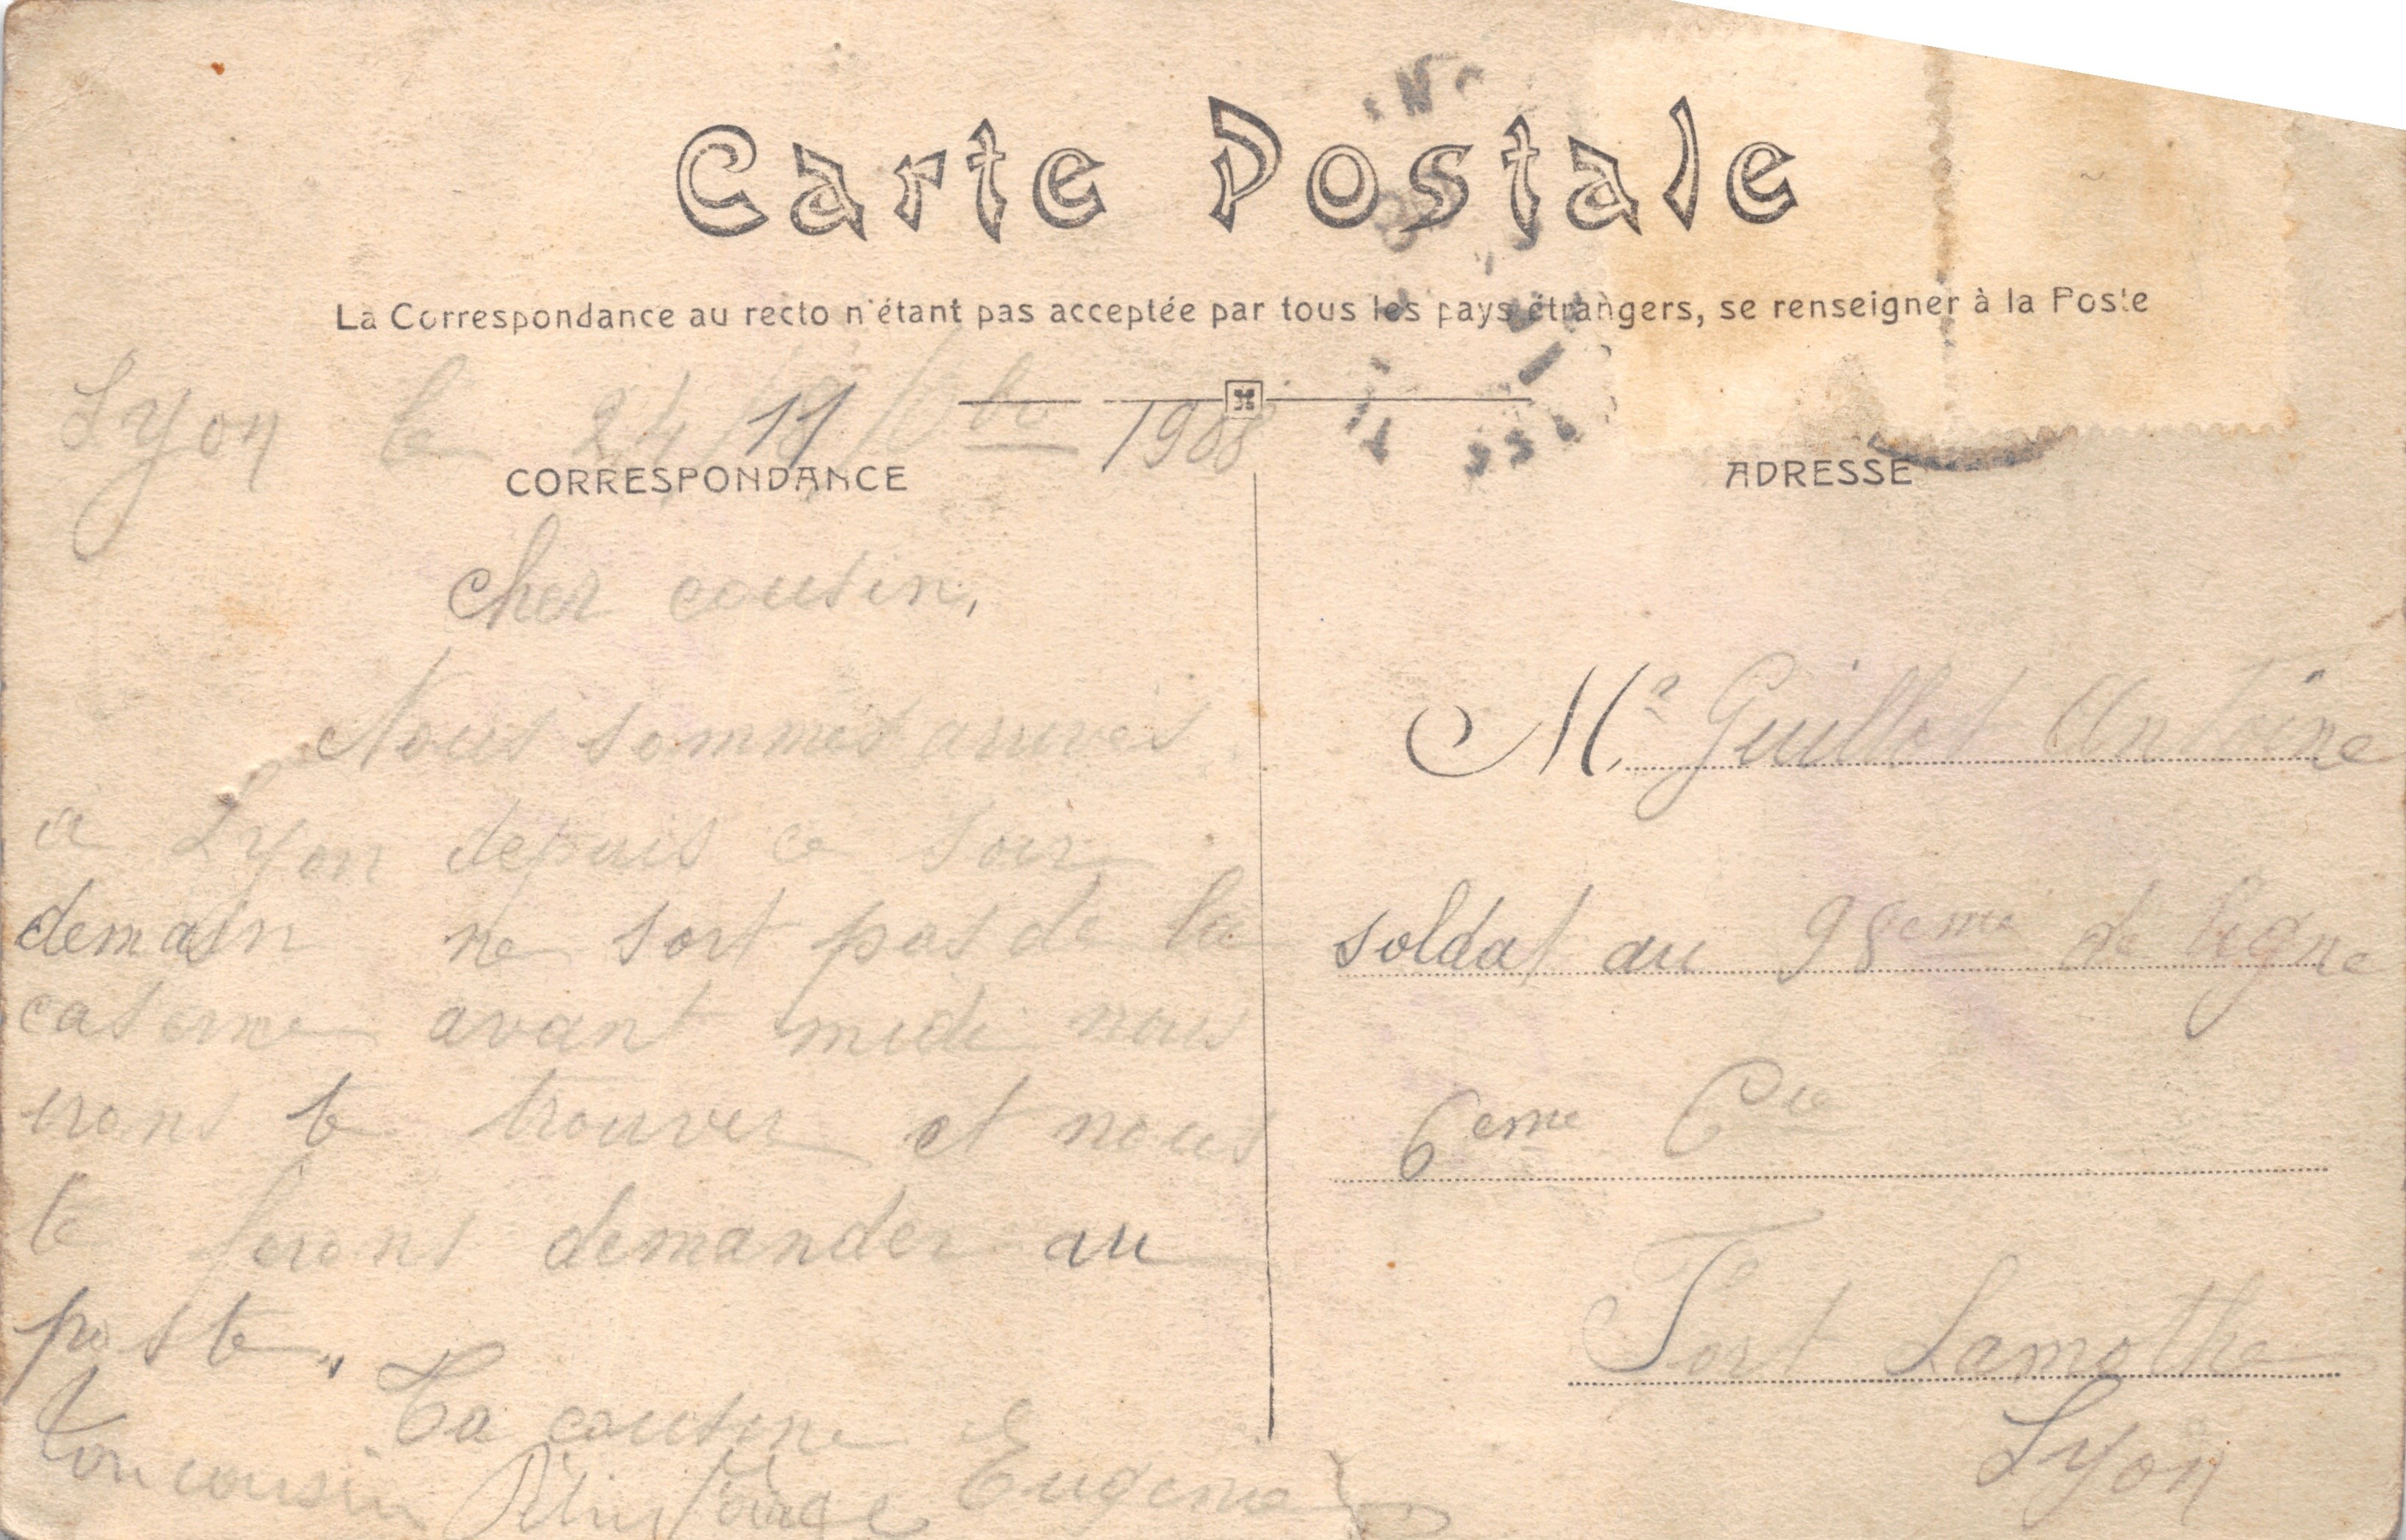 Carte Postale
La Correspondance au recto n'étant pas acceptée par tous les pays étrangers, se renseigner à la Poste
Lyon le 24 1908
CORRESPONDANCE
ADRESSE
cher cousin,
Nous sommes arrivés
à Lyon depuis ce soir
demain ne sort pas de la
caserne avant midi nous
irons te trouver et nous
te ferons demander au
poste.
Ta cousine
Eugénie
ton cousin
Mr Guillot Antoine
soldat au 98eme de ligne
6eme Cie
Fort Lamothe
Lyon